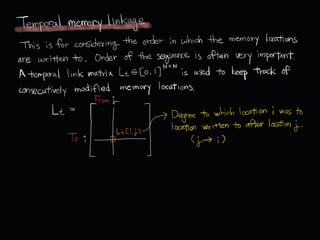 Temporal memory linkage
This is for considering the order in which the memory locations
are written to. Order of the sequence is often very important.
A temporal link matrix Lt ∈ [0,1]^N×N is used to keep track of
consecutively modified memory locations.
From j
Lt =
To i
Lt[i,j]
Degree to which location i was to
location written to after location j.
(j → i)